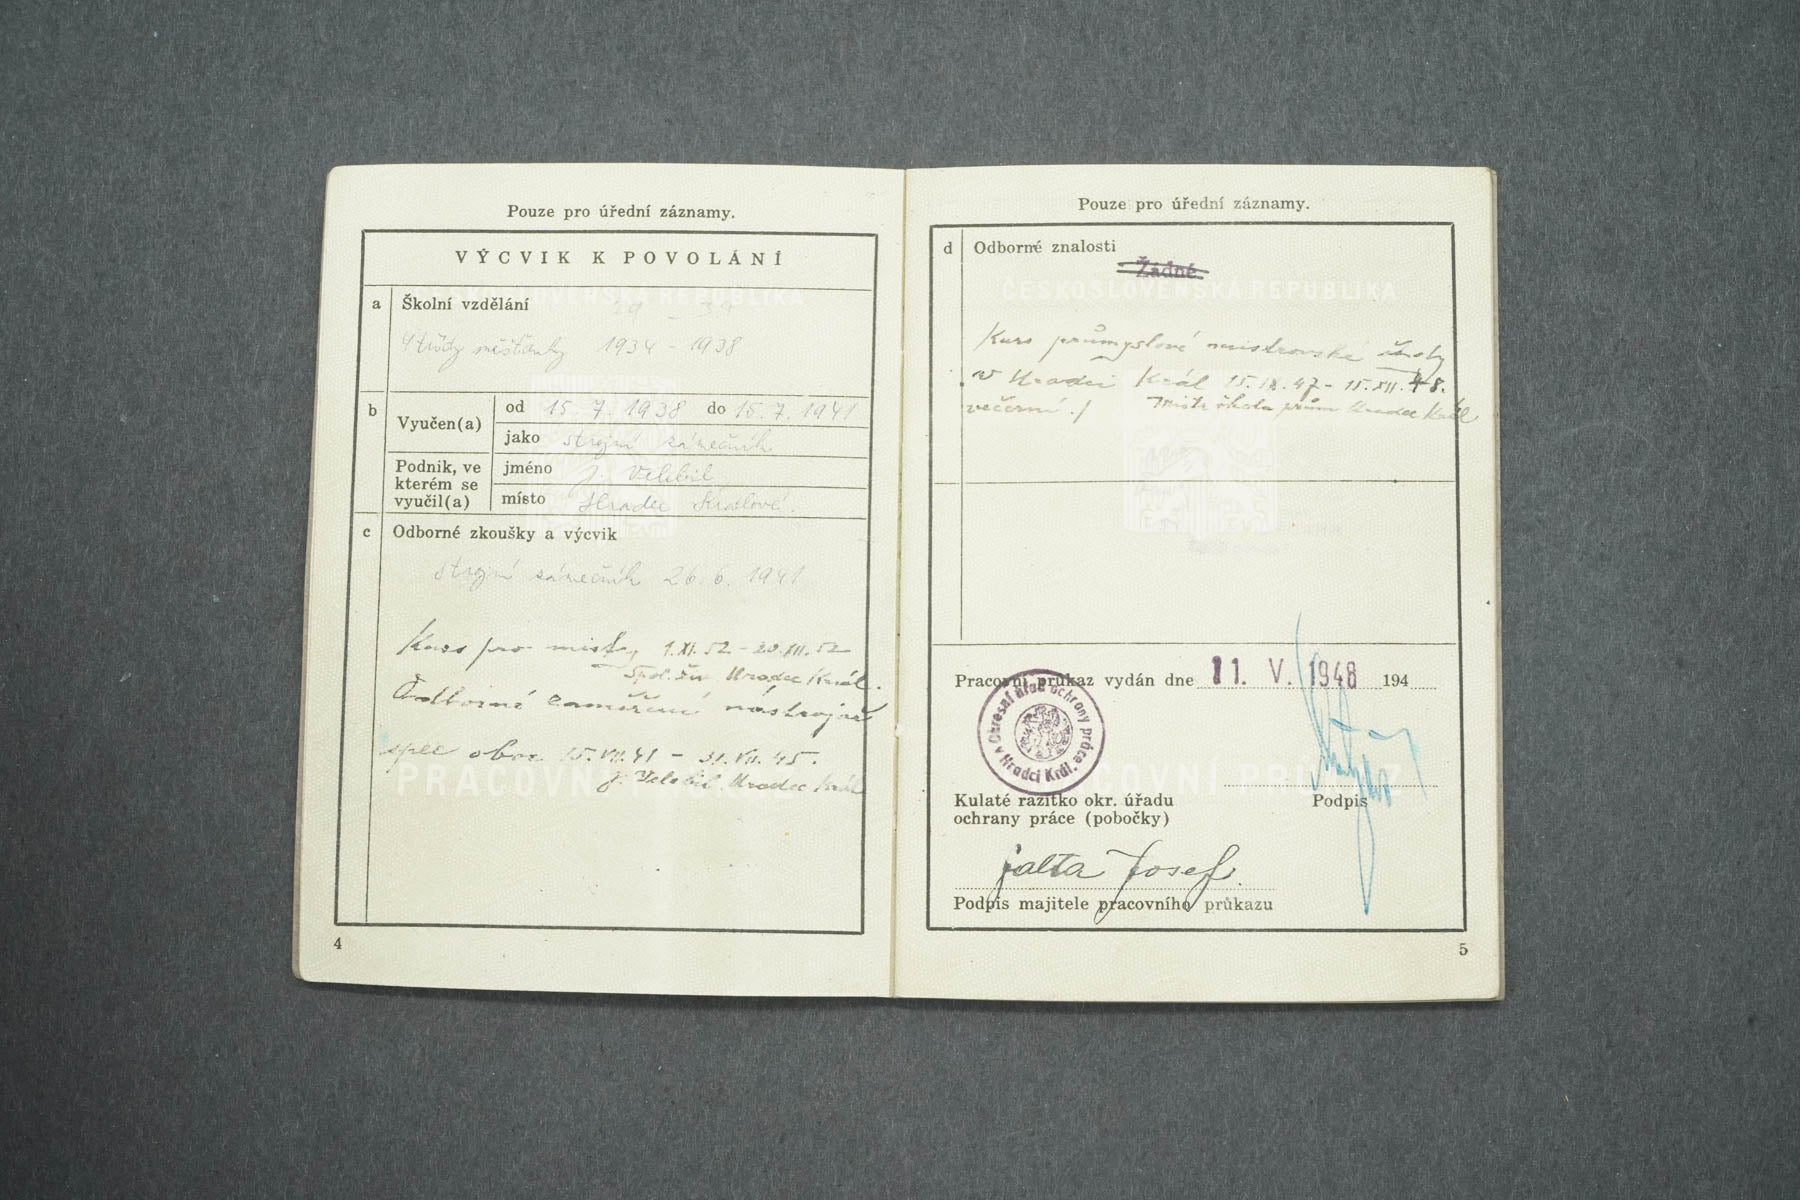 Pouze pro úřední záznamy.
VÝCVIK K POVOLÁNÍ
ČESKOSLOVENSKÁ REPUBLIKA
a Školní vzdělání
4 třídy měšťanky 1934 - 1938
b Vyučen(a)
od 15. 7. 1938 do 15. 7. 1941
jako strojní zámečník
Podnik, ve kterém se vyučil(a)
jméno J. Velebil
místo Hradec Králové.
c Odborné zkoušky a výcvik
strojní zámečník 26. 6. 1941
Kurs pro mistry 1.XI.52 - 20.XII.52
Hradec Král.
Odborné zaměření nástrojař
spec obor 15.VII.41 - 31.VII.45.
J. Velebil Hradec Král
PRACOVNÍ PRŮKAZ
4
Pouze pro úřední záznamy.
d Odborné znalosti
Žádné
ČESKOSLOVENSKÁ REPUBLIKA
Kurs průmyslové mistrovské školy
v Hradci Král 15.IX.47 - 15.XII.48.
večerní./ Mistr škola prům Hradec Král
Pracovní průkaz vydán dne 11. V. 1948 194
Okresní úřad ochrany práce v Hradci Král.
PRACOVNÍ PRŮKAZ
Kulaté razítko okr. úřadu
ochrany práce (pobočky)
Podpis
Jalta Josef.
Podpis majitele pracovního průkazu
5